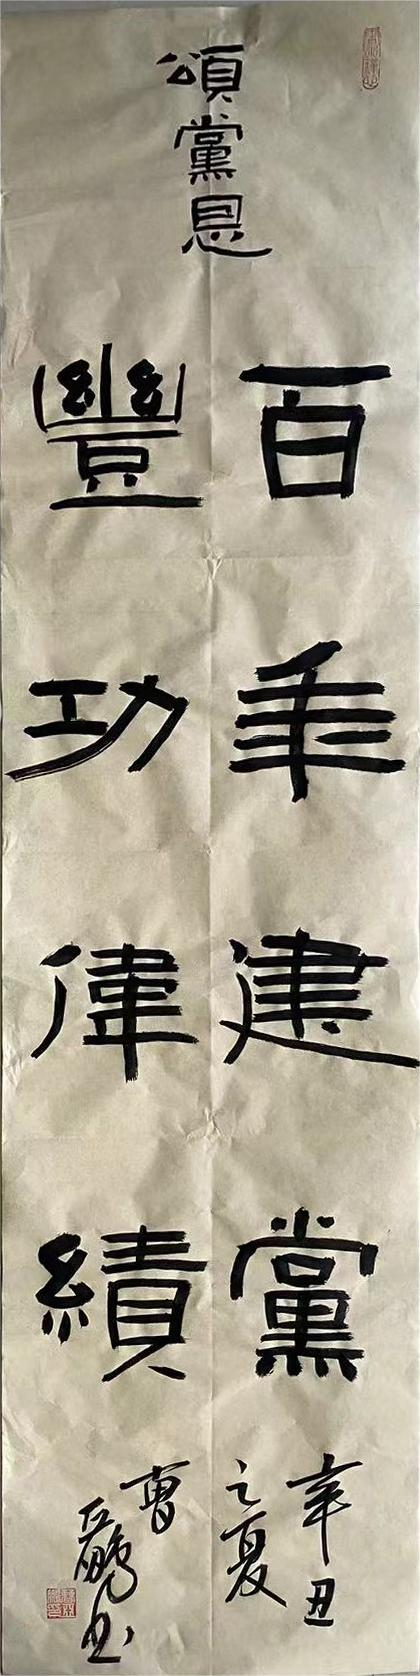 頌黨恩
百年建黨
豐功偉績
辛丑
之夏
曹